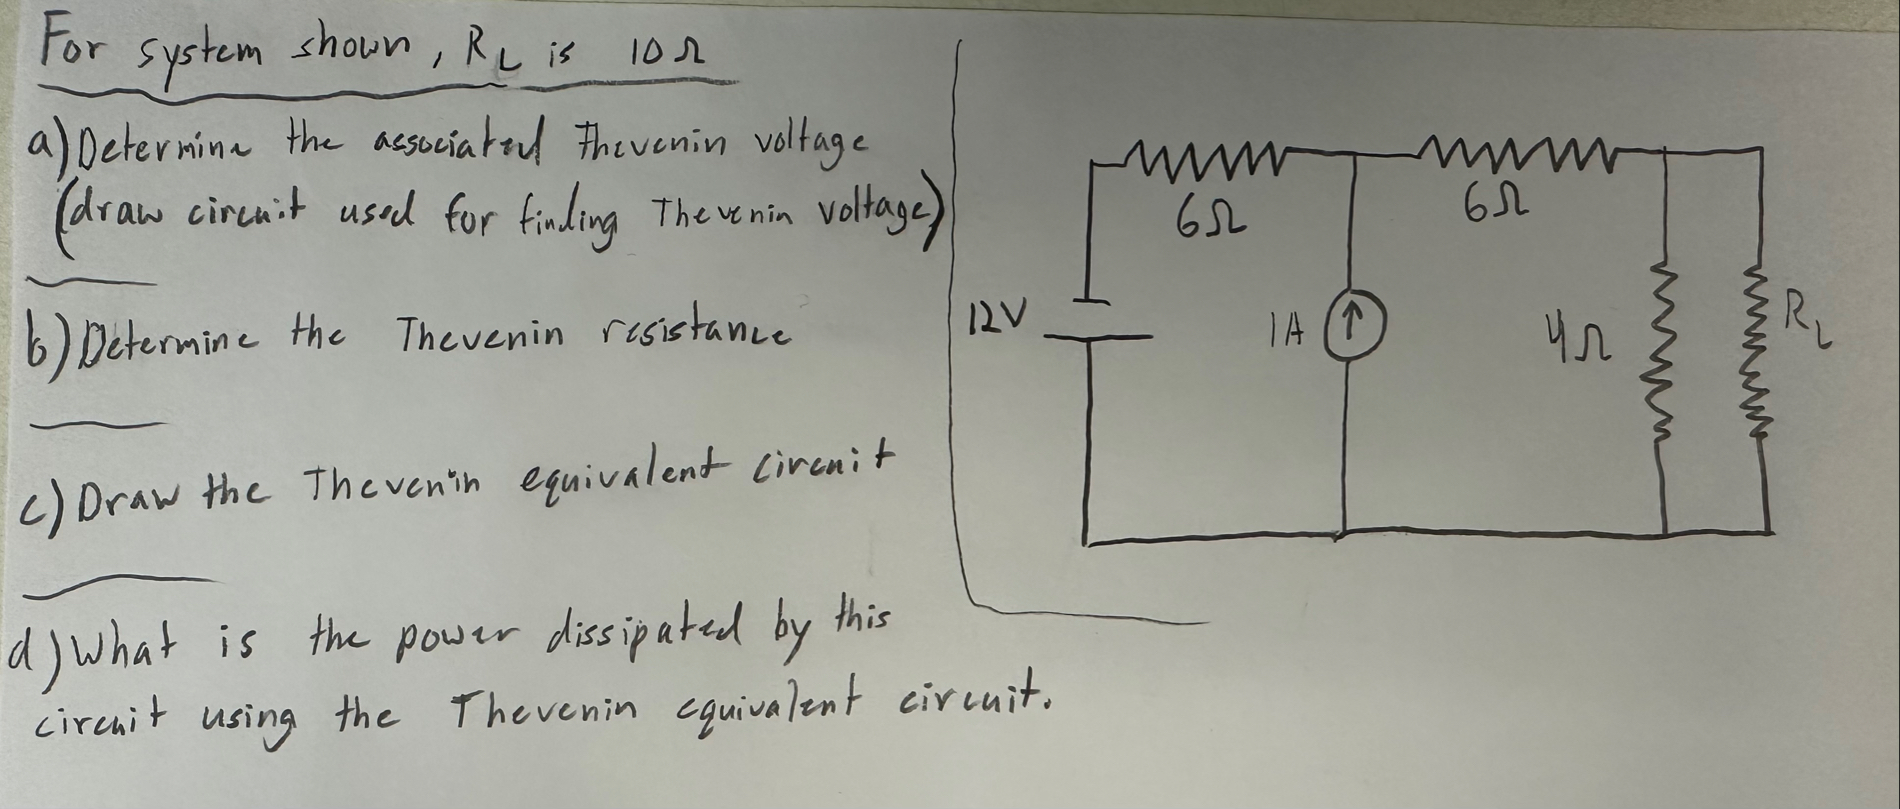 For system shown, RL is 10Ω
a) Determine the associated Thevenin voltage
(draw circuit used for finding Thevenin voltage)
b) Determine the Thevenin resistance
c) Draw the Thevenin equivalent circuit
d) What is the power dissipated by this
circuit using the Thevenin equivalent circuit.
6Ω
6Ω
12V
1A
4Ω
RL